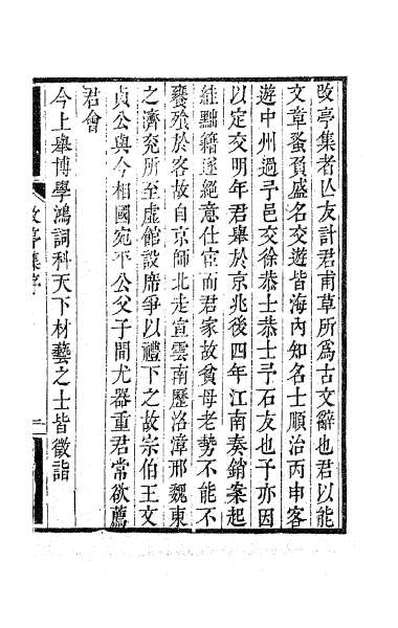 改亭集者亾友計君甫草所爲古文辭也君以能
文章蚤負盛名交遊皆海内知名士順治丙申客
遊中州過予邑交徐恭士恭士予石友也予亦因
以定交明年君舉於京兆後四年江南奏銷案起
絓黜籍遂絕意仕宦而君家故貧母老勢不能不
餐飱於客故自京師北走宣雲南歷洛漳邢魏東
之濟兖所至虚館設席爭以禮下之故宗伯王文
貞公與今相國宛平公父子間尤器重君常欲薦
君會
今上舉博學鴻詞科天下材藝之士皆徵詣
改亭集序
一